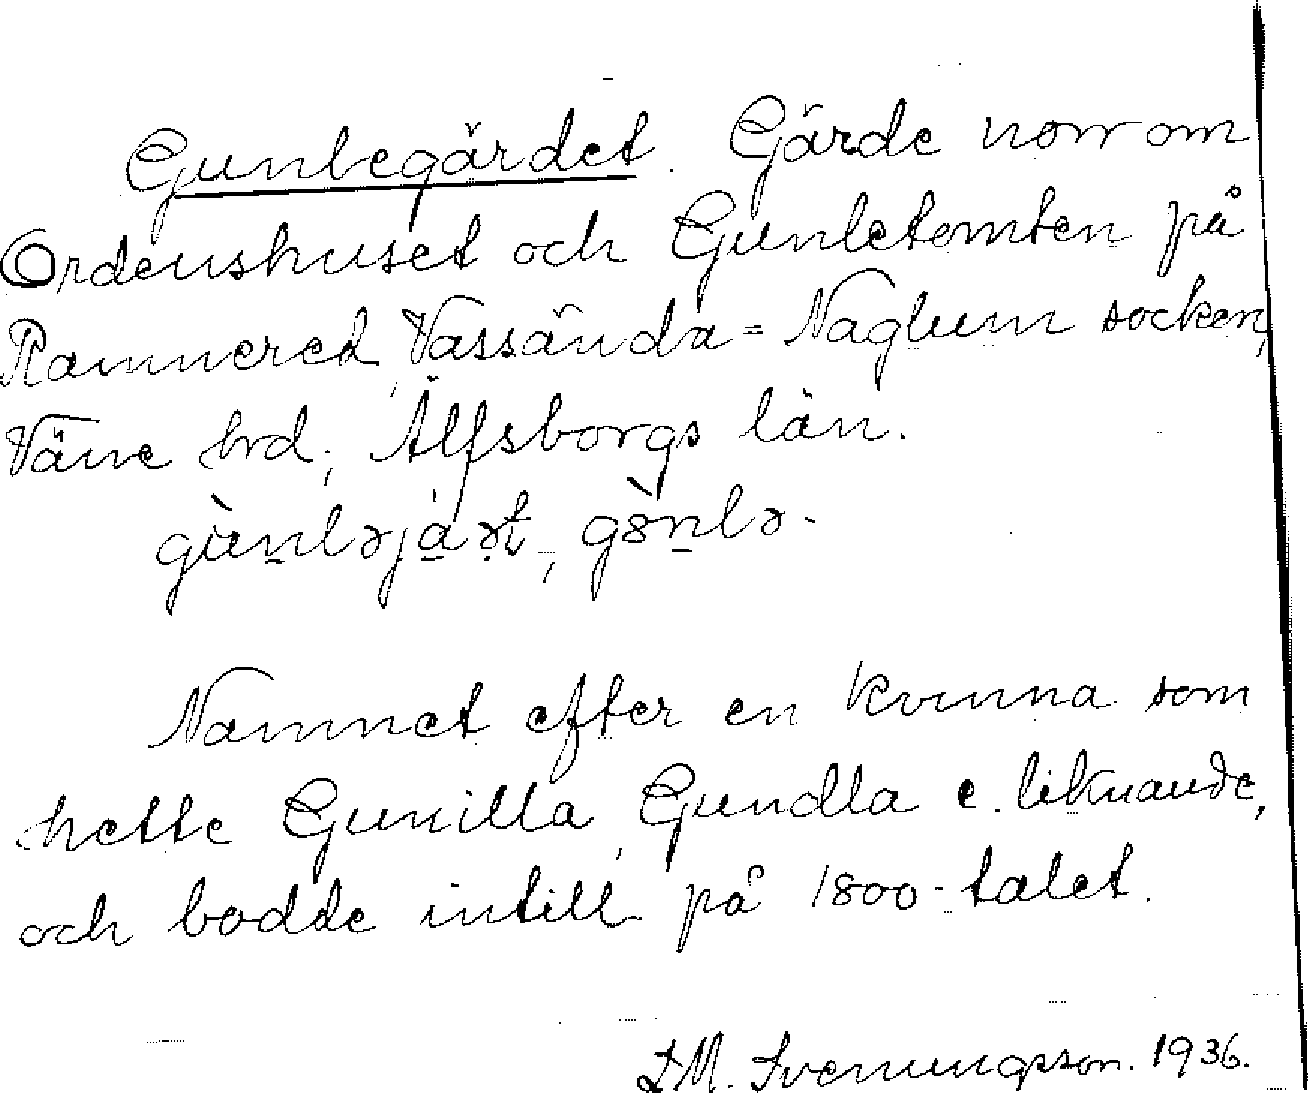 Gunlegärdet. Gärde norr om
Ordenshuset och Gunletomten på
Rannered, Vassända-Naglum socken,
Väne hrd, Älfsborgs län.
Namnet efter en kvinna som
hette Gunilla, Gundla e. liknande,
och bodde intill på 1800-talet.
I M. Svenungsson. 1936.